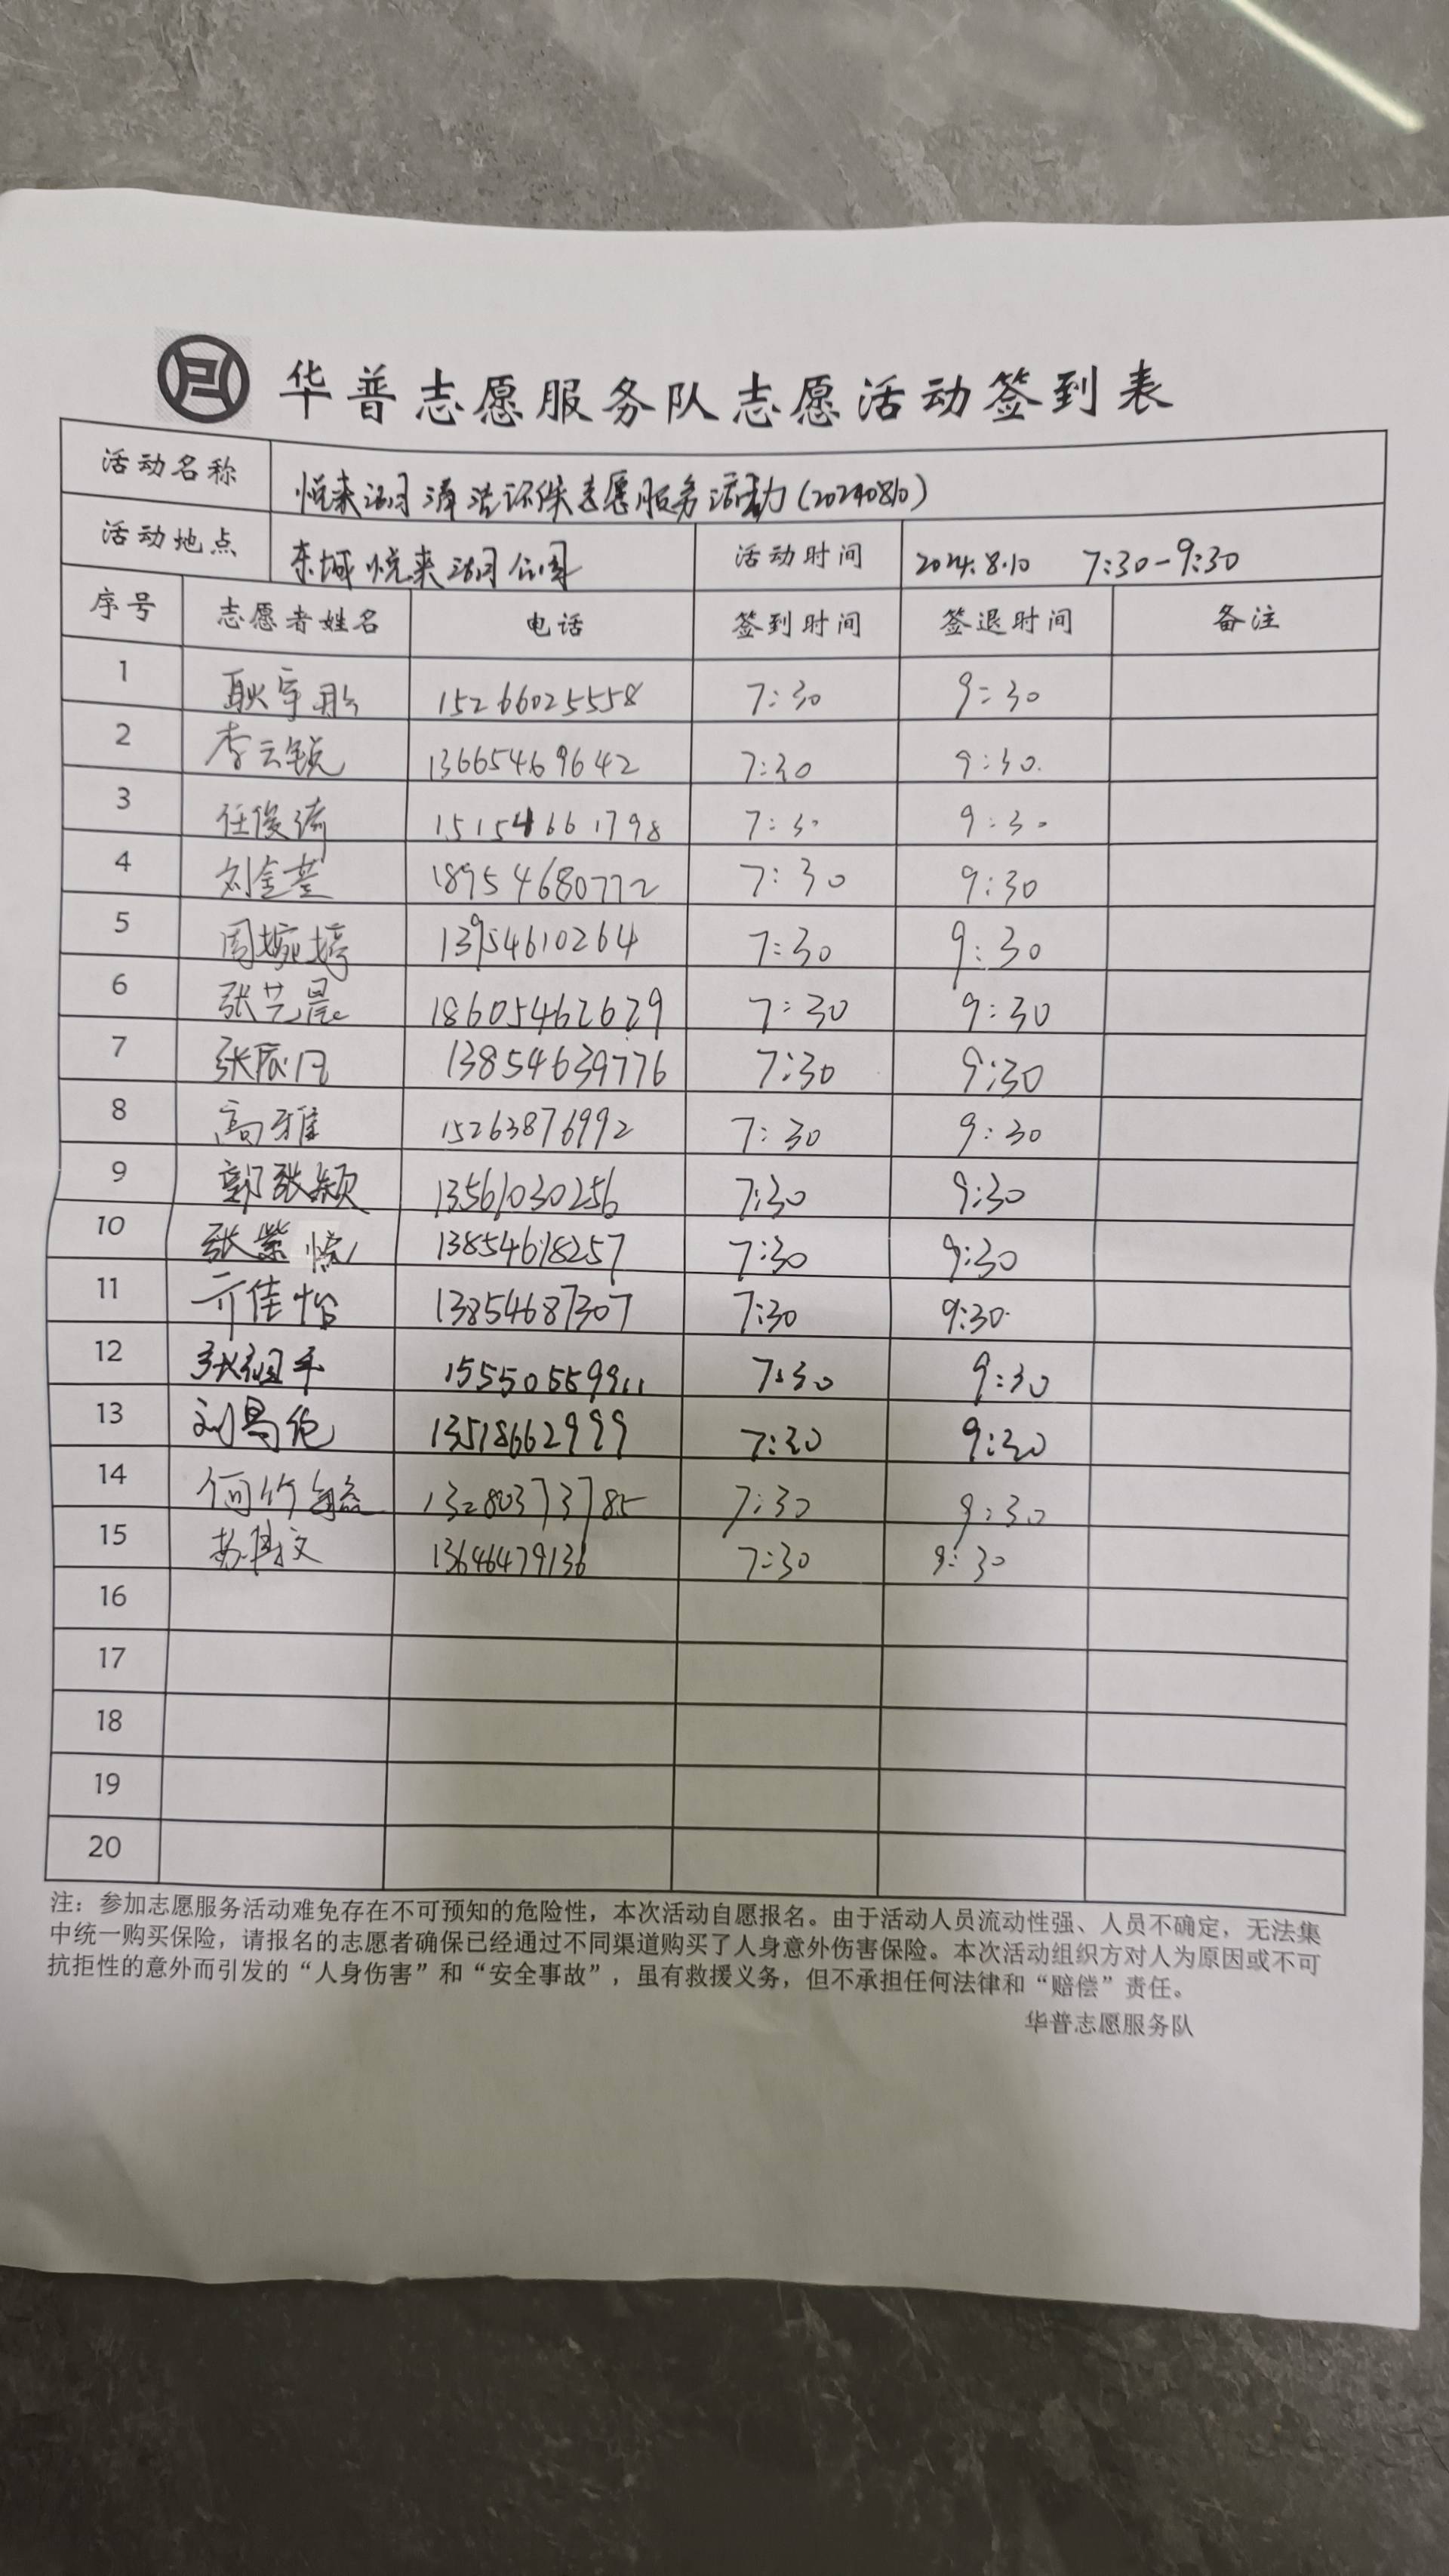 华普志愿服务队志愿活动签到表
活动名称 悦来湖清洁环保志愿服务活动(20240810)
活动地点 东城悦来湖公园 活动时间 2024.8.10 7:30-9:30
序号 志愿者姓名 电话 签到时间 签退时间 备注
1 耿宇彤 15266025558 7:30 9:30
2 李云锐 13665469642 7:30 9:30
3 任俊涛 15154661798 7:30 9:30
4 刘金 18954680772 7:30 9:30
5 周婉婷 13954610264 7:30 9:30
6 张艺晨 18605462629 7:30 9:30
7 张辰 13854639776 7:30 9:30
8 高雅 15263876992 7:30 9:30
9 郭张颖 13561030256 7:30 9:30
10 张紫悦 13854618257 7:30 9:30
11 亓佳怡 13854687307 7:30 9:30
12 张 15550559911 7:30 9:30
13 刘昌伦 13518662999 7:30 9:30
14 何竹 13280373785 7:30 9:30
15 苏博文 13646479136 7:30 9:30
16
17
18
19
20
注：参加志愿服务活动难免存在不可预知的危险性，本次活动自愿报名。由于活动人员流动性强、人员不确定，无法集
中统一购买保险，请报名的志愿者确保已经通过不同渠道购买了人身意外伤害保险。本次活动组织方对人为原因或不可
抗拒性的意外而引发的“人身伤害”和“安全事故”，虽有救援义务，但不承担任何法律和“赔偿”责任。
华普志愿服务队